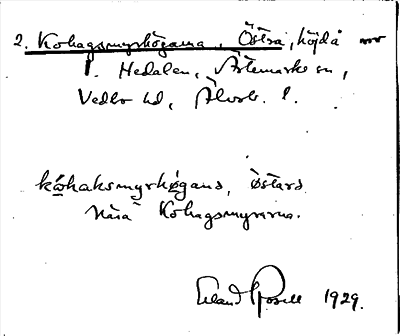 2. Kohagsmyrhögarna, Östra, höjdå
1. Hedalen, Ärtemarks sn,
Vedbo hd, Älvsb. l.
kóhaksmyrhøgana, òstara
Nära Kohagsmyrarna.
Erland Rosell 1929.